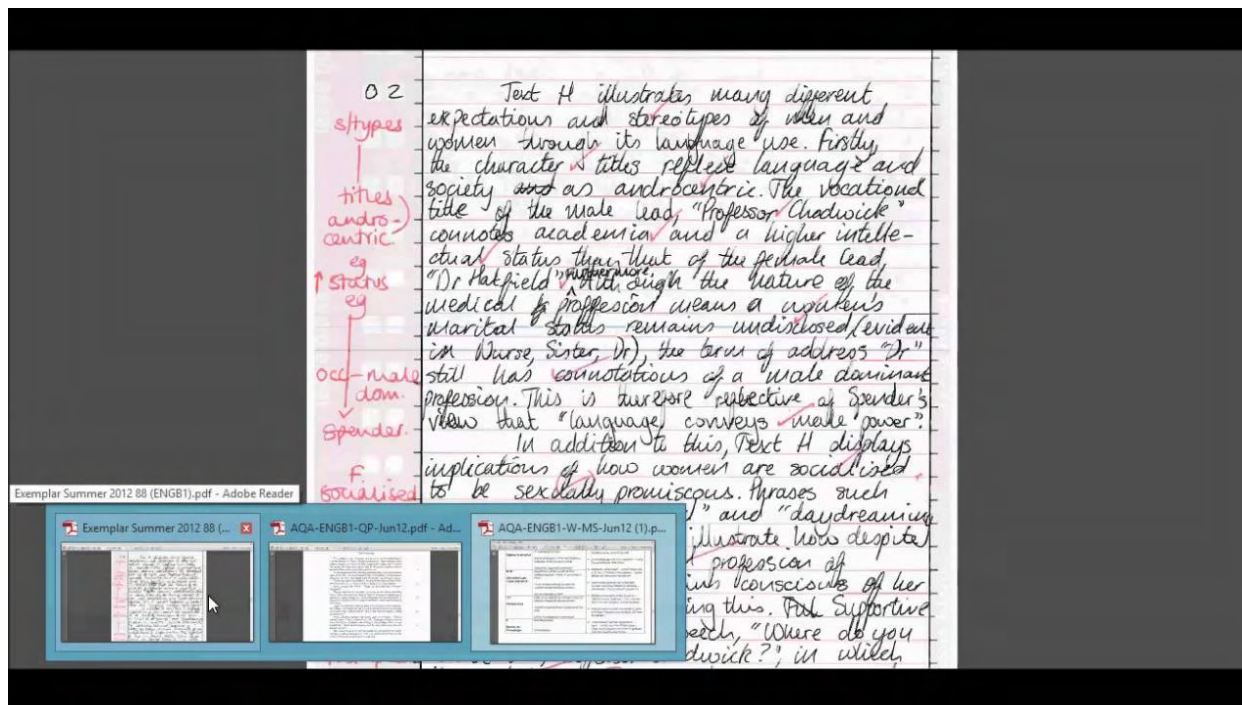 02
Text H illustrates many different
expectations and stereotypes of men and
women through its language use. Firstly,
the character titles reflect language and
society and as androcentric. The vocational
title of the male lead, "Professor Chadwick"
connotes academia and a higher intelle-
ctual status than that of the female lead
"Dr Hatfield". Furthermore, although the nature of the
medical proffesion means a women's
marital status remains undisclosed (evident
in Nurse, Sister, Dr), the term of address "Dr"
still has connotations of a male dominant
profession. This is therefore reflective of Spender's
view that "language conveys male power".
In addition to this, Text H displays
implications of how women are socialised
to be sexually promiscous. Phrases such
" and "daydreaming
illustrate how despite
profession of
conscious of her
ing this. Supportive
eech, "Where do you
dwick?", in which
s/types
titles
andro-
centric
eg
↑ status
eg
occ - male
dom.
Spender.
F
socialised
Exemplar Summer 2012 88 (ENGB1).pdf - Adobe Reader
Exemplar Summer 2012 88 (...
AQA-ENGB1-QP-Jun12.pdf - Ad...
AQA-ENGB1-W-MS-Jun12 (1).p...